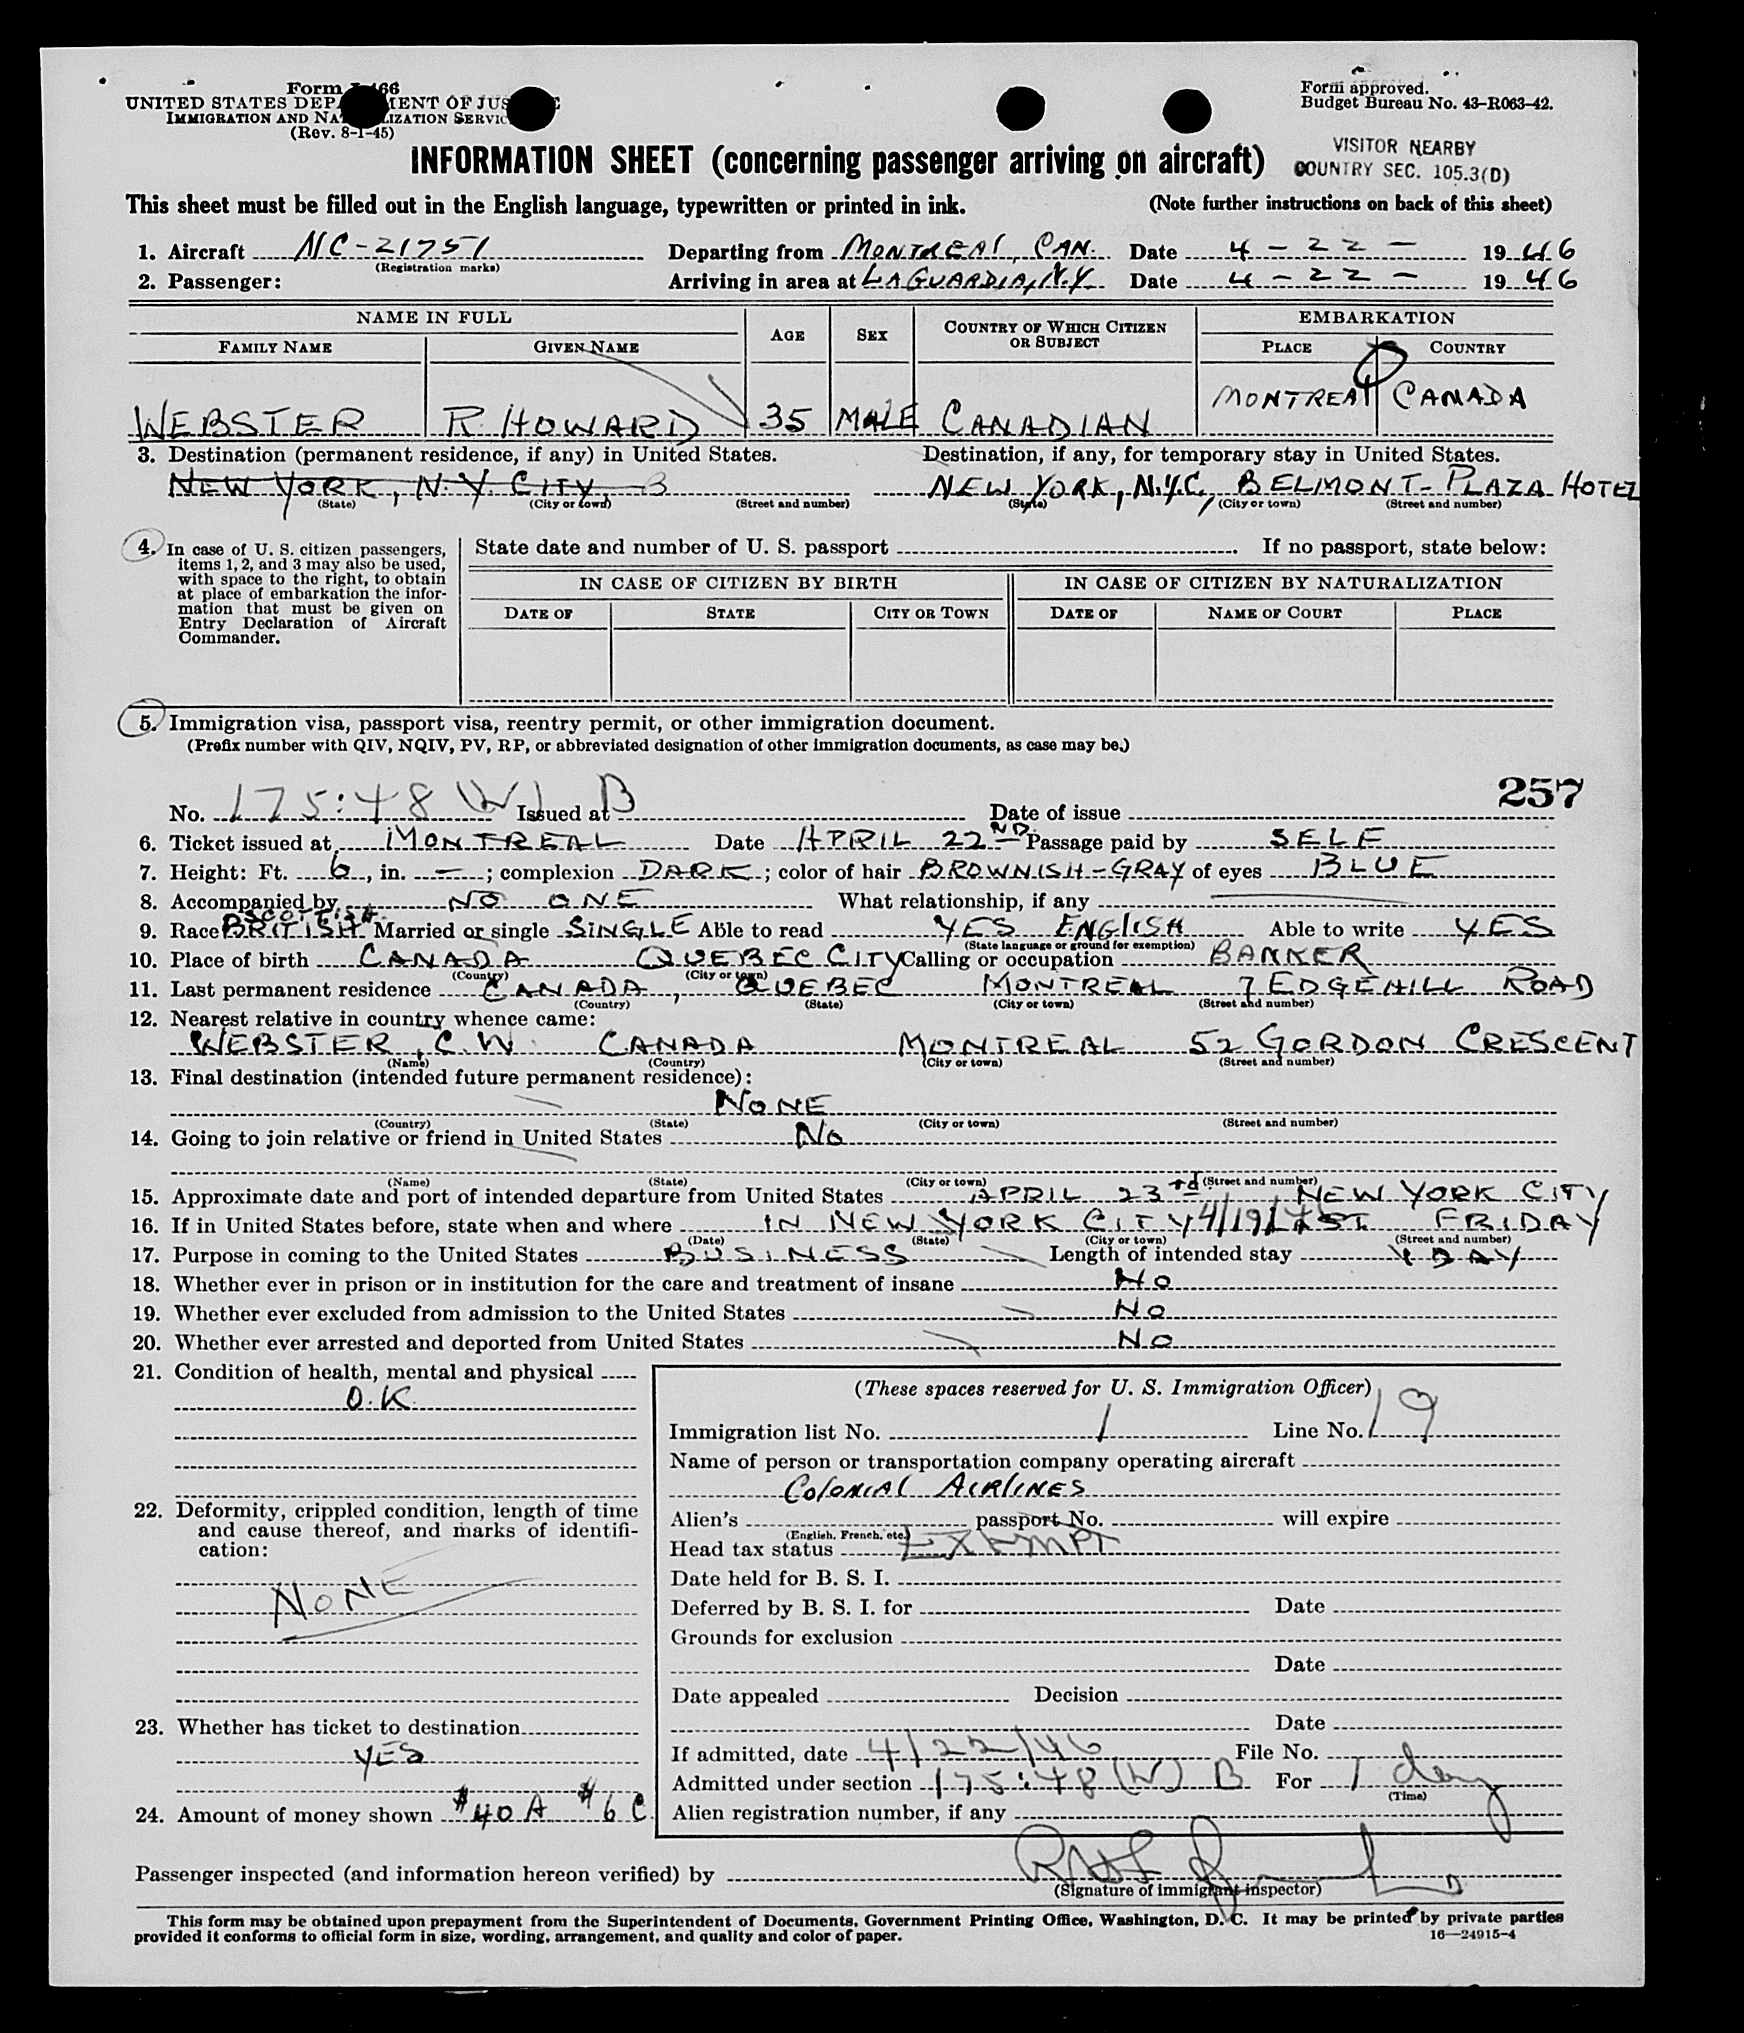 Form I-466
UNITED STATES DEPARTMENT OF JUSTICE
IMMIGRATION AND NATURALIZATION SERVICE
(Rev. 8-1-45)
Form approved.
Budget Bureau No. 43-R063-42.
VISITOR NEARBY
COUNTRY SEC. 105.3(D)
INFORMATION SHEET (concerning passenger arriving on aircraft)
This sheet must be filled out in the English language, typewritten or printed in ink. (Note further instructions on back of this sheet)
1. Aircraft NC-21751 Departing from MONTREAL, CAN. Date 4-22- 1946
(Registration marks)
2. Passenger: Arriving in area at LAGUARDIA, N.Y. Date 4-22- 1946
NAME IN FULL AGE SEX COUNTRY OF WHICH CITIZEN OR SUBJECT EMBARKATION
FAMILY NAME GIVEN NAME PLACE COUNTRY
WEBSTER R. HOWARD 35 MALE CANADIAN MONTREAL CANADA
3. Destination (permanent residence, if any) in United States. Destination, if any, for temporary stay in United States.
NEW YORK, N.Y. CITY 3 NEW YORK, N.Y.C., BELMONT-PLAZA HOTEL
(State) (City or town) (Street and number) (State) (City or town) (Street and number)
4. In case of U. S. citizen passengers,
items 1, 2, and 3 may also be used,
with space to the right, to obtain
at place of embarkation the infor-
mation that must be given on
Entry Declaration of Aircraft
Commander.
State date and number of U. S. passport . If no passport, state below:
IN CASE OF CITIZEN BY BIRTH IN CASE OF CITIZEN BY NATURALIZATION
DATE OF STATE CITY OR TOWN DATE OF NAME OF COURT PLACE
5. Immigration visa, passport visa, reentry permit, or other immigration document.
(Prefix number with QIV, NQIV, PV, RP, or abbreviated designation of other immigration documents, as case may be.)
257
No. 175:48 (W) Issued at B Date of issue
6. Ticket issued at MONTREAL Date APRIL 22ND Passage paid by SELF
7. Height: Ft. 6, in. —; complexion DARK; color of hair BROWNISH-GRAY of eyes BLUE
8. Accompanied by NO ONE What relationship, if any
9. Race SCOTTISH BRITISH Married or single SINGLE Able to read YES ENGLISH Able to write YES
(State language or ground for exemption)
10. Place of birth CANADA QUEBEC CITY Calling or occupation BANKER
(Country) (City or town)
11. Last permanent residence CANADA, QUEBEC MONTREAL 7 EDGEHILL ROAD
(Country) (State) (City or town) (Street and number)
12. Nearest relative in country whence came:
WEBSTER, C.W. CANADA MONTREAL 52 GORDON CRESCENT
(Name) (Country) (City or town) (Street and number)
13. Final destination (intended future permanent residence):
NONE
(Country) (State) (City or town) (Street and number)
14. Going to join relative or friend in United States No
(Name) (State) (City or town) (Street and number)
15. Approximate date and port of intended departure from United States APRIL 23rd, NEW YORK CITY
16. If in United States before, state when and where IN NEW YORK CITY 4/19/ LAST FRIDAY
(Date) (State) (City or town) (Street and number)
17. Purpose in coming to the United States BUSINESS Length of intended stay 1 DAY
18. Whether ever in prison or in institution for the care and treatment of insane No
19. Whether ever excluded from admission to the United States No
20. Whether ever arrested and deported from United States No
21. Condition of health, mental and physical
O.K.
22. Deformity, crippled condition, length of time
and cause thereof, and marks of identifi-
cation:
NONE
23. Whether has ticket to destination
YES
24. Amount of money shown $40 A $6 C
(These spaces reserved for U. S. Immigration Officer)
Immigration list No. 1 Line No. 19
Name of person or transportation company operating aircraft
COLONIAL AIRLINES
Alien's passport No. will expire
(English, French, etc.)
Head tax status EXEMPT
Date held for B. S. I.
Deferred by B. S. I. for Date
Grounds for exclusion
Date
Date appealed Decision
Date
If admitted, date 4/22/46 File No.
Admitted under section 175:48 (W) B For 1 day
(Time)
Alien registration number, if any
Passenger inspected (and information hereon verified) by
(Signature of immigrant inspector)
This form may be obtained upon prepayment from the Superintendent of Documents, Government Printing Office, Washington, D. C. It may be printed by private parties
provided it conforms to official form in size, wording, arrangement, and quality and color of paper.
16—24915-4